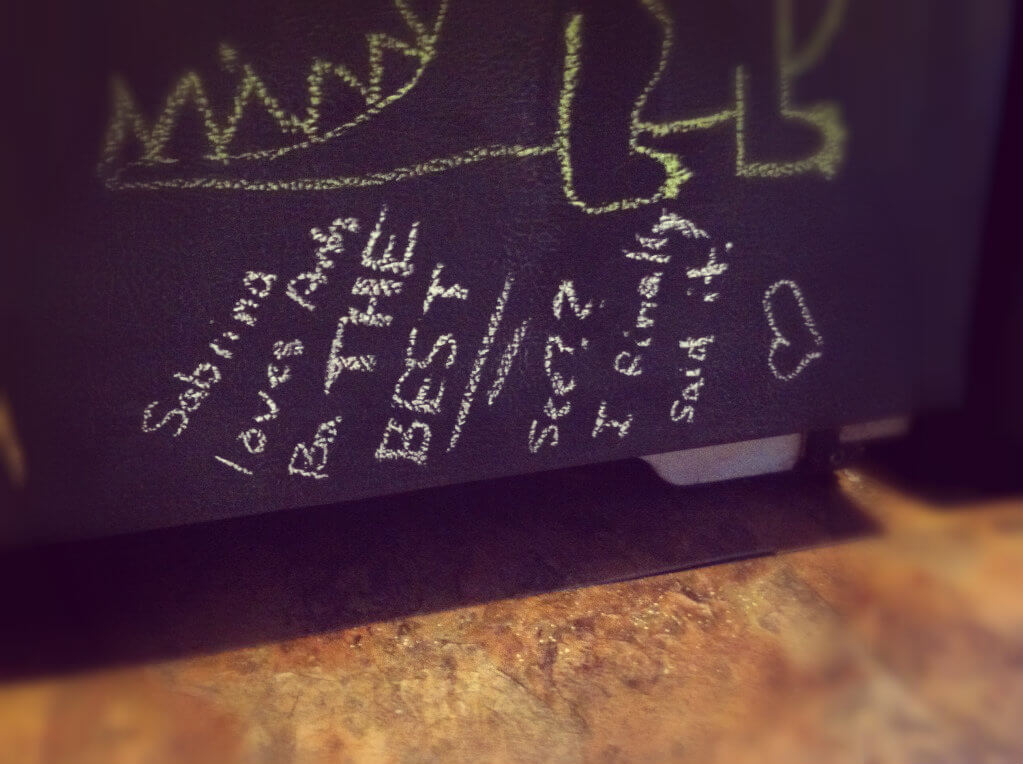 Sabring
loves
THE
BEST
See?
I finally
said it.